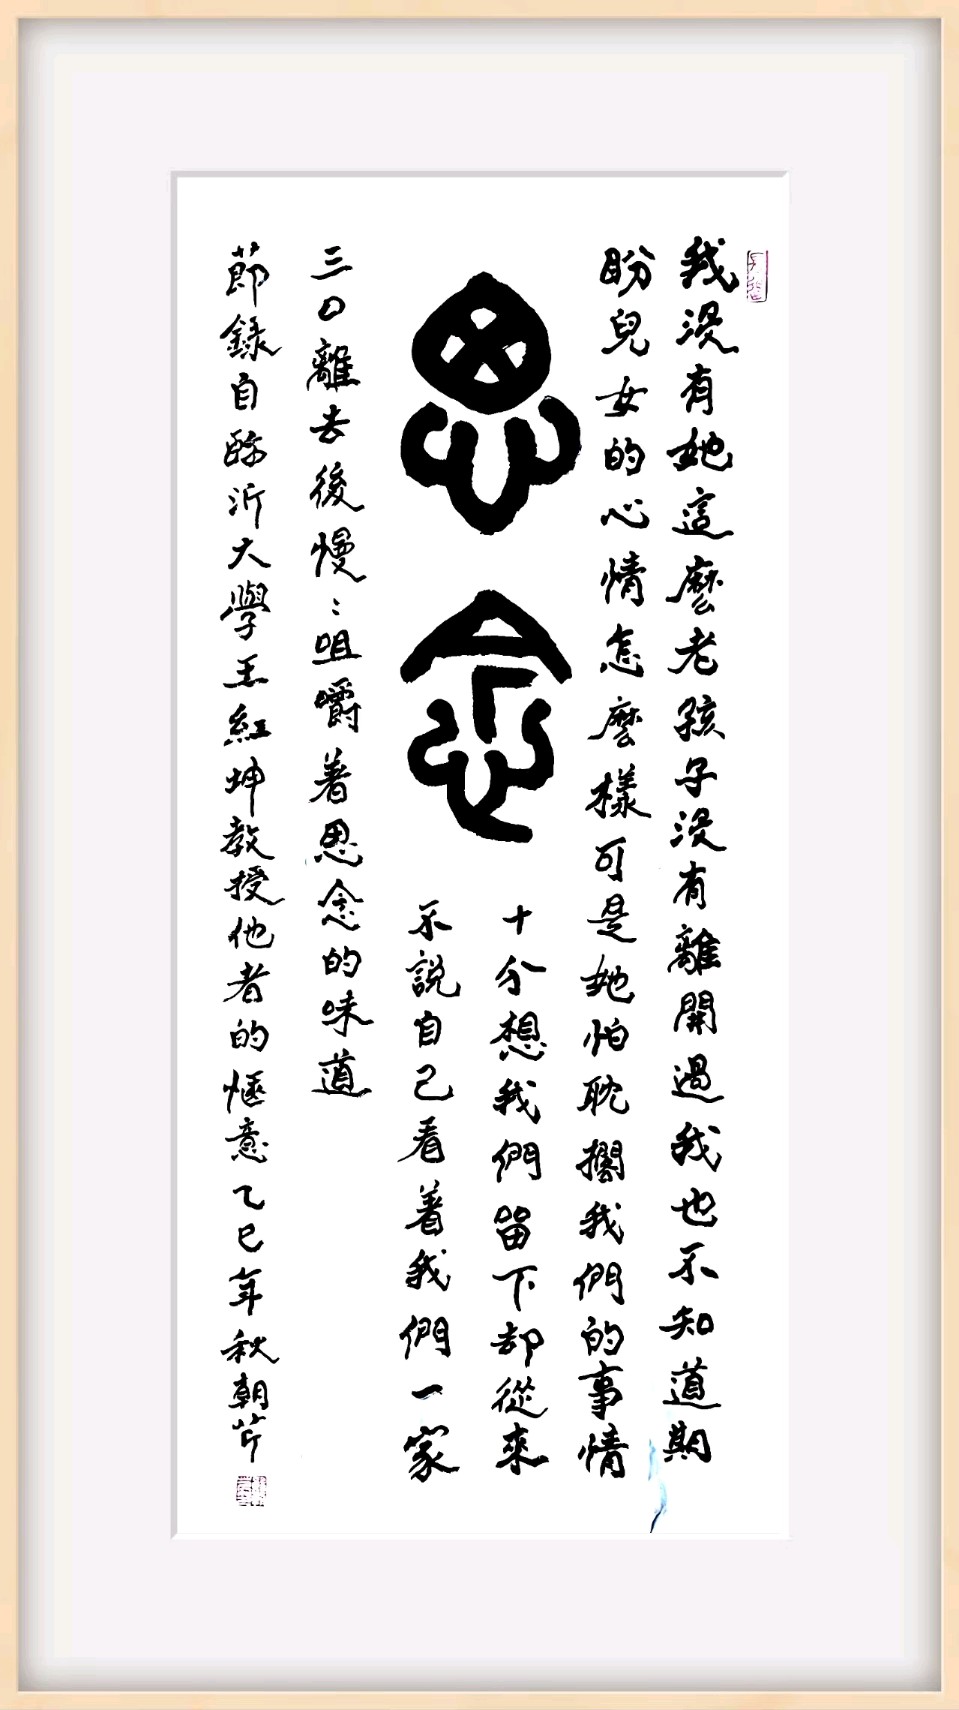 我没有她這麼老孩子没有離開過我也不知道期
盼兒女的心情怎麼樣可是她怕耽擱我們的事情
十分想我們留下却從來
不說自己看着我們一家
思念
三口離去後慢〻咀嚼着思念的味道
節錄自臨沂大學王紅坤教授他者的愜意乙巳年秋朝芹